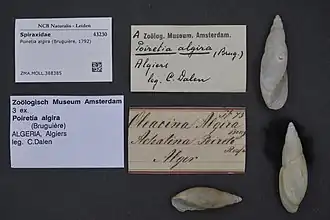 NCB Naturalis - Leiden
Spiraxidae 43230
Poiretia algira (Bruguière, 1792)
ZMA.MOLL.388385
A Zoölog. Museum, Amsterdam.
Poiretia algira
(Brug.)
Algiers
leg. C. Dalen
Zoölogisch Museum Amsterdam
3 ex.
Poiretia algira
(Bruguière)
ALGERIA, Algiers
leg. C.Dalen
Oleacina Algira
Achatina Poireti
Alger